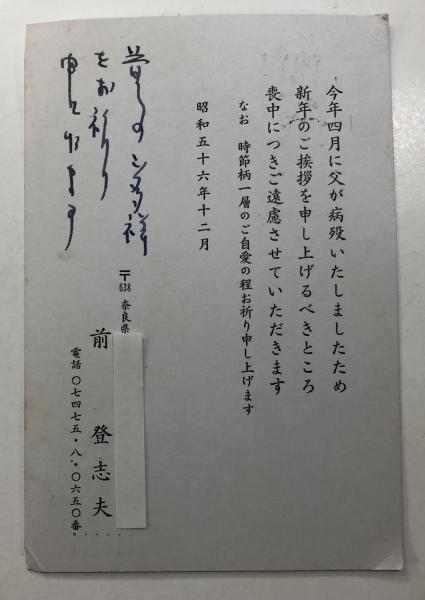 今年四月に父が病歿いたしましたため
新年のご挨拶を申し上げるべきところ
喪中につきご遠慮させていただきます
なお 時節柄一層のご自愛の程お祈り申し上げます
昭和五十六年十二月
をお祈り
申し上ります
〒638 奈良県
前 登志夫
電話 〇七四七五・八・〇六五〇番